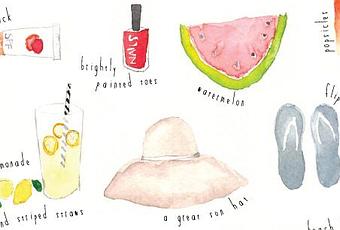 ck
SPF
brightly
painted toes
watermelon
popsicles
flip
monade
nd striped straws
a great sun hat